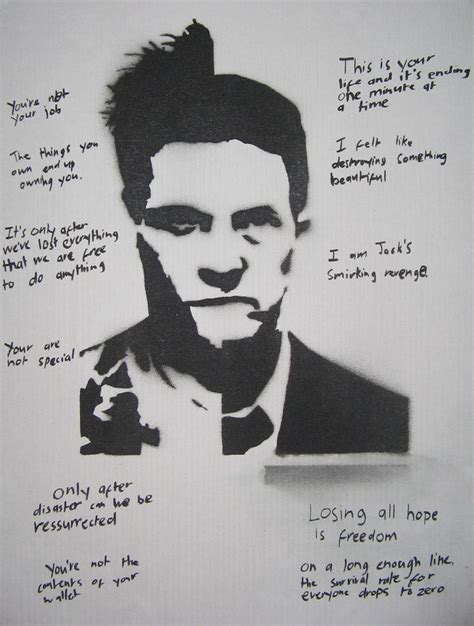 You're not
your job
The things you
own end up
owning you.
It's only after
we've lost everything
that we are free
to do anything
Your are
not special
Only after
disaster can we be
ressurrected
You're not the
contents of your
wallet
This is your
life and it's ending
one minute at
a time
I felt like
destroying something
beautiful
I am Jack's
Smirking revenge.
Losing all hope
is freedom
on a long enough line,
the survival rate for
everyone drops to zero